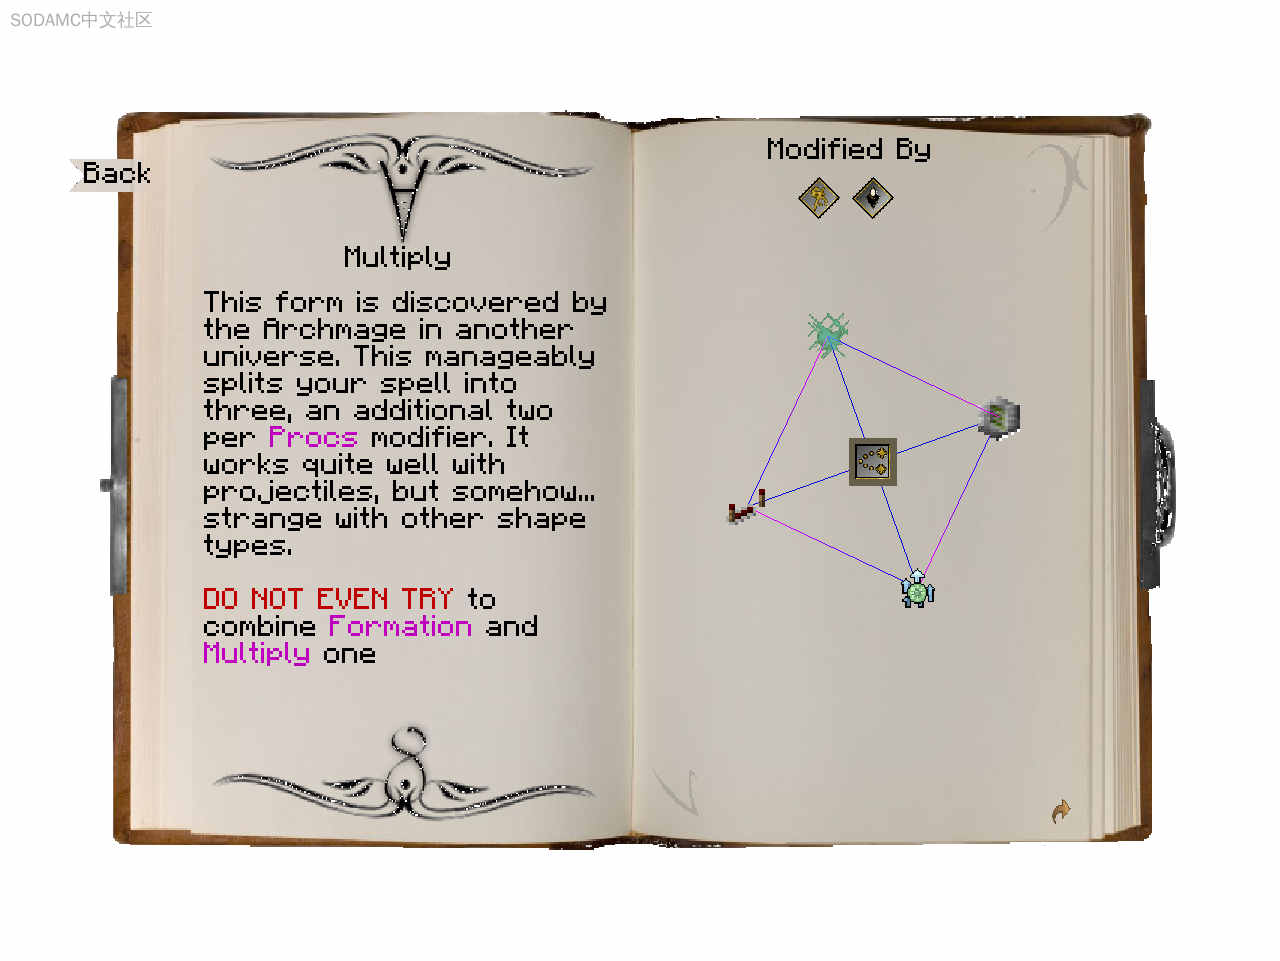 SODAMC中文社区
Back
Multiply
This form is discovered by
the Archmage in another
universe. This manageably
splits your spell into
three, an additional two
per Procs modifier. It
works quite well with
projectiles, but somehow...
strange with other shape
types.
DO NOT EVEN TRY to
combine Formation and
Multiply one
Modified By